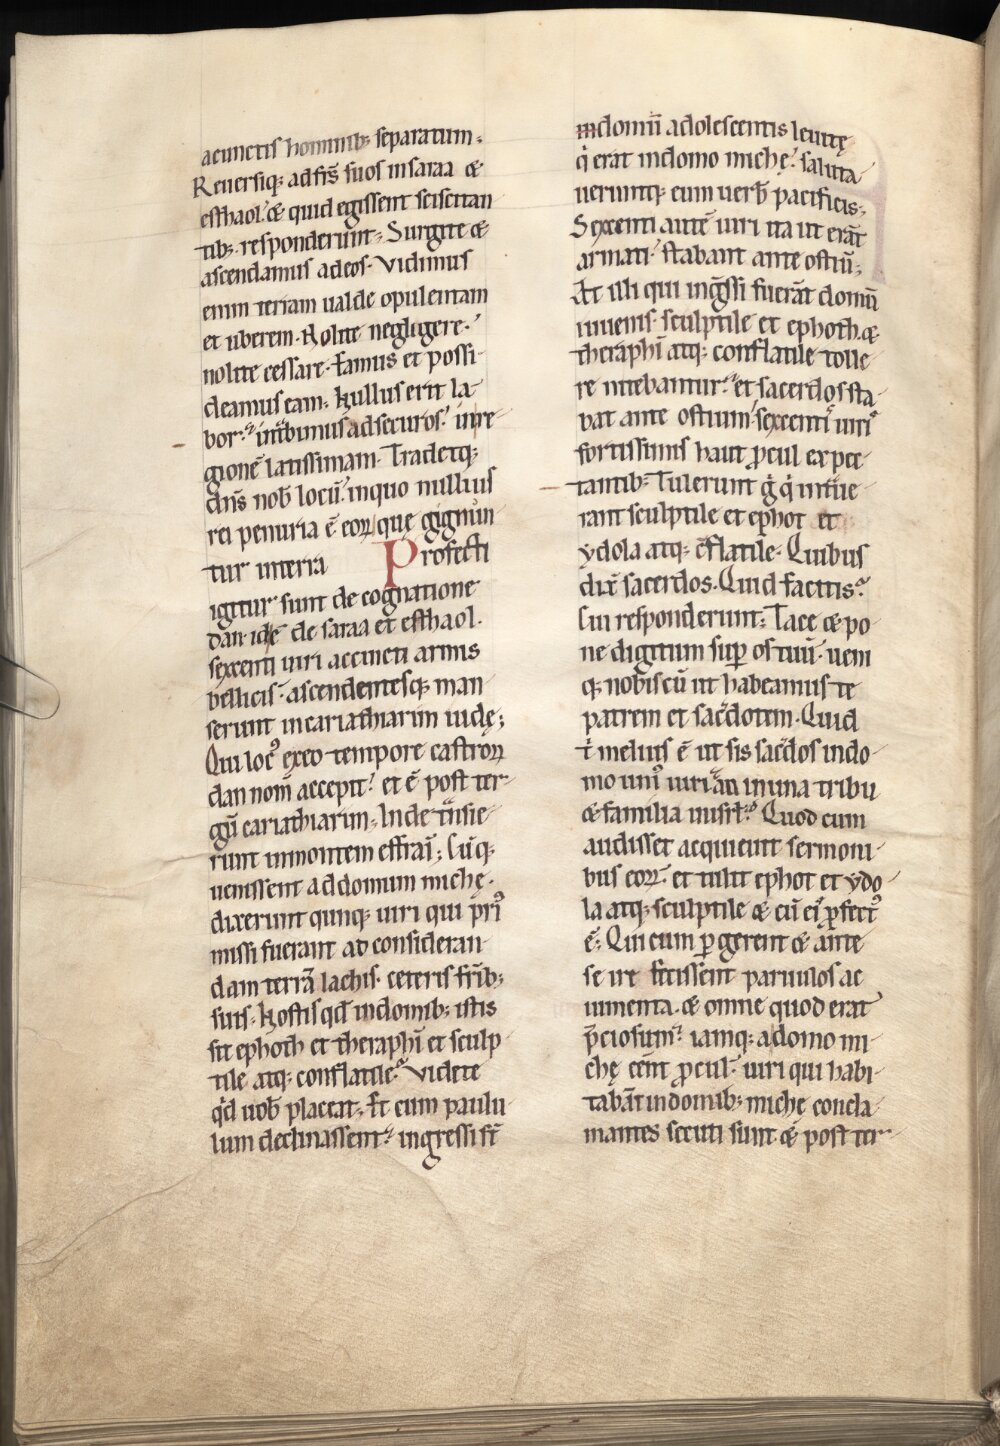 acunctis hominib; separatum;
Reuersiq; adfr̄s suos insaraa &
esthaol. & quid egissent sciscitan
tib; responderunt; Surgite &
ascendamus adeos. vidimus
enim terram ualde opulentam
et uberem. Nolite negligere.
nolite cessare. Eamus et possi-
deamus eam; Nullus erit la-
bor. intᵃbimus adsecuros. inre-
gionē latissimam. Tradetq;
dn̄s nob̄ locū. inquo nullius
rei penuria ē eoꝝ que gignun
tur interra Profecti
igitur sunt de cognatione
dan. idē de saraa et esthaol.
sexcenti uiri accincti armis
bellicis. ascendentesq; man-
serunt incariathiarim iudę;
Qui locꝰ exeo tempore castroꝝ
dan nom̄ accepit. et ē post ter-
gū cariathiarim; Inde tᵃnsie-
runt inmontem effraī; Cūq;
uenissent addomum michę.
dixerunt quinq; uiri qui pri9
missi fuerant ad consideran-
dam terrā lachis. ceteris fr̄ib;
suis. Nostis qd̄ indomib; istis
sit ephoth et theraphī et sculp
tile atq; conflatile. Videte
qd̄ uob̄ placeat; Et cum paulu
lum declinassent. ingressi st̄
indomū adolescentis leuitę
q̇ erat indomo michę. saluta-
ueruntq; eum uerb̄ pacificis;
Sexcenti autē uiri ita ut erāt
armati. stabant ante ostiū;
At illi qui ingssi fuerāt domū
iuuenis. sculptile et ephoth. &
theraphī atq; conflatile tolle-
re nitebantur. et sacerdos sta-
bat ante ostium. sexcentī uirī
fortissimis haut ꝓcul expec-
tantib; Tulerunt g̊ q̇ intᵃue-
rant sculptile et ephot et
ydola atq; cflatile. Quibus
dix̄ sacerdos. Quid facitis.
Cui responderunt; Tace & po-
ne digitum suꝑ os tuū. ueni
q; nobiscū ut habeamus te
patrem et sac̄dotem. Quid
t̄ melius ē ut sis sac̄dos indo-
mo uni9 uiri an inuna tribu
& familia in isrł. Quod cum
audisset acquieuit sermoni-
bus eoꝝ. et tulit ephot et ydo-
la atq; sculptile & cū eī ꝓfect9
ē; Qui cum ꝑgerent & ante
se ire fecissent paruulos ac
iumenta. & omne quod erat
p̄ciosum. iamq; adomo mi-
chę eēnt ꝓcul. uiri qui habi-
tabāt indomib; michę concla-
mantes secuti sunt & post ter-